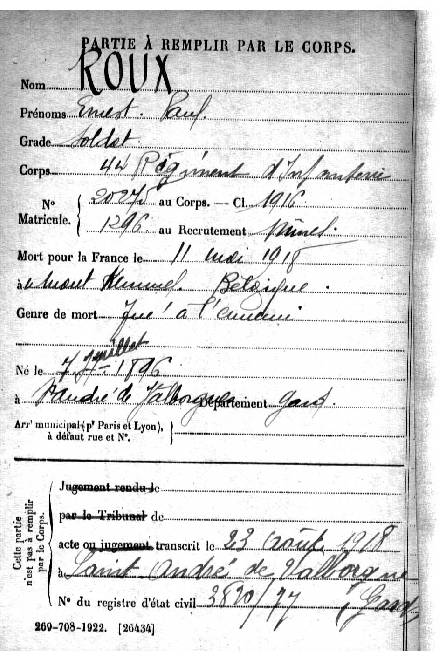 PARTIE À REMPLIR PAR LE CORPS.
Nom ROUX
Prénoms Ernest Paul
Grade Soldat
Corps 44 Régiment d'Infanterie
N° Matricule. 20275 au Corps. — Cl. 1916
1296 au Recrutement Nîmes
Mort pour la France le 11 mai 1918
à Mont Kemmel Belgique
Genre de mort Tué à l'ennemi
Né le 7 Juillet 1896
à St André de Valborgne Département Gard
Arr' municipal (p' Paris et Lyon), à défaut rue et N°.
Cette partie n'est pas à remplir par le Corps.
Jugement rendu le
par le Tribunal de
acte ou jugement transcrit le 23 août 1918
à Saint André de Valborgne
N° du registre d'état civil 2830/77 (Gard)
269-708-1922. [26434]